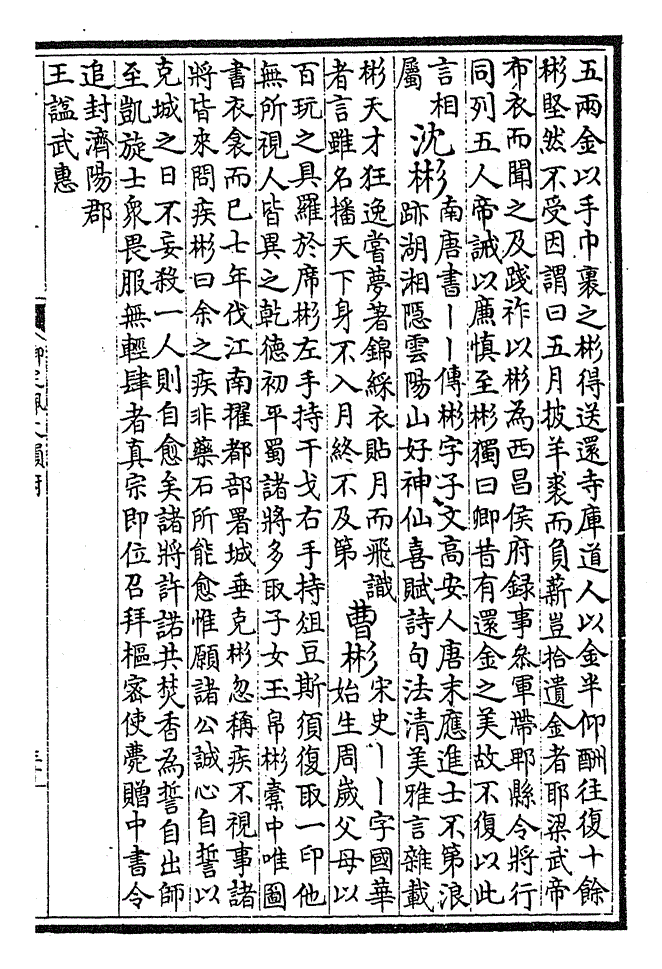 五兩金以手巾裹之彬得送還寺庫道人以金半仰酬往復十餘
彬堅然不受因謂曰五月披羊裘而負薪豈拾遺金者耶梁武帝
布衣而聞之及踐祚以彬為西昌侯府録事叅軍帶郫縣令將行
同列五人帝誡以㢘慎至彬獨曰卿昔有還金之美故不復以此
言相
屬
沈彬
南唐書丨丨傳彬字子文高安人唐末應進士不第浪
跡湖湘隱雲陽山好神仙喜賦詩句法清美雅言雜載
彬天才狂逸嘗夢著錦綵衣貼月而飛識
者言雖名播天下身不入月終不及第
曹彬
宋史丨丨字國華
始生周歲父母以
百玩之具羅於席彬左手持干戈右手持俎豆斯須復取一印他
無所視人皆異之乾德初平蜀諸將多取子女玉帛彬橐中唯圖
書衣衾而已七年伐江南擢都部署城垂克彬忽稱疾不視事諸
將皆來問疾彬曰余之疾非藥石所能愈惟願諸公誠心自誓以
克城之日不妄殺一人則自愈矣諸將許諾共焚香為誓自出師
至凱旋士衆畏服無輕肆者真宗即位召拜樞密使薨贈中書令
追封濟陽郡
王諡武惠